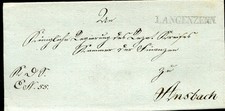 An
LANGENZENN
Königliche Regierung des Rezat Kreises
Kammer der Finanzen
zu
Ansbach